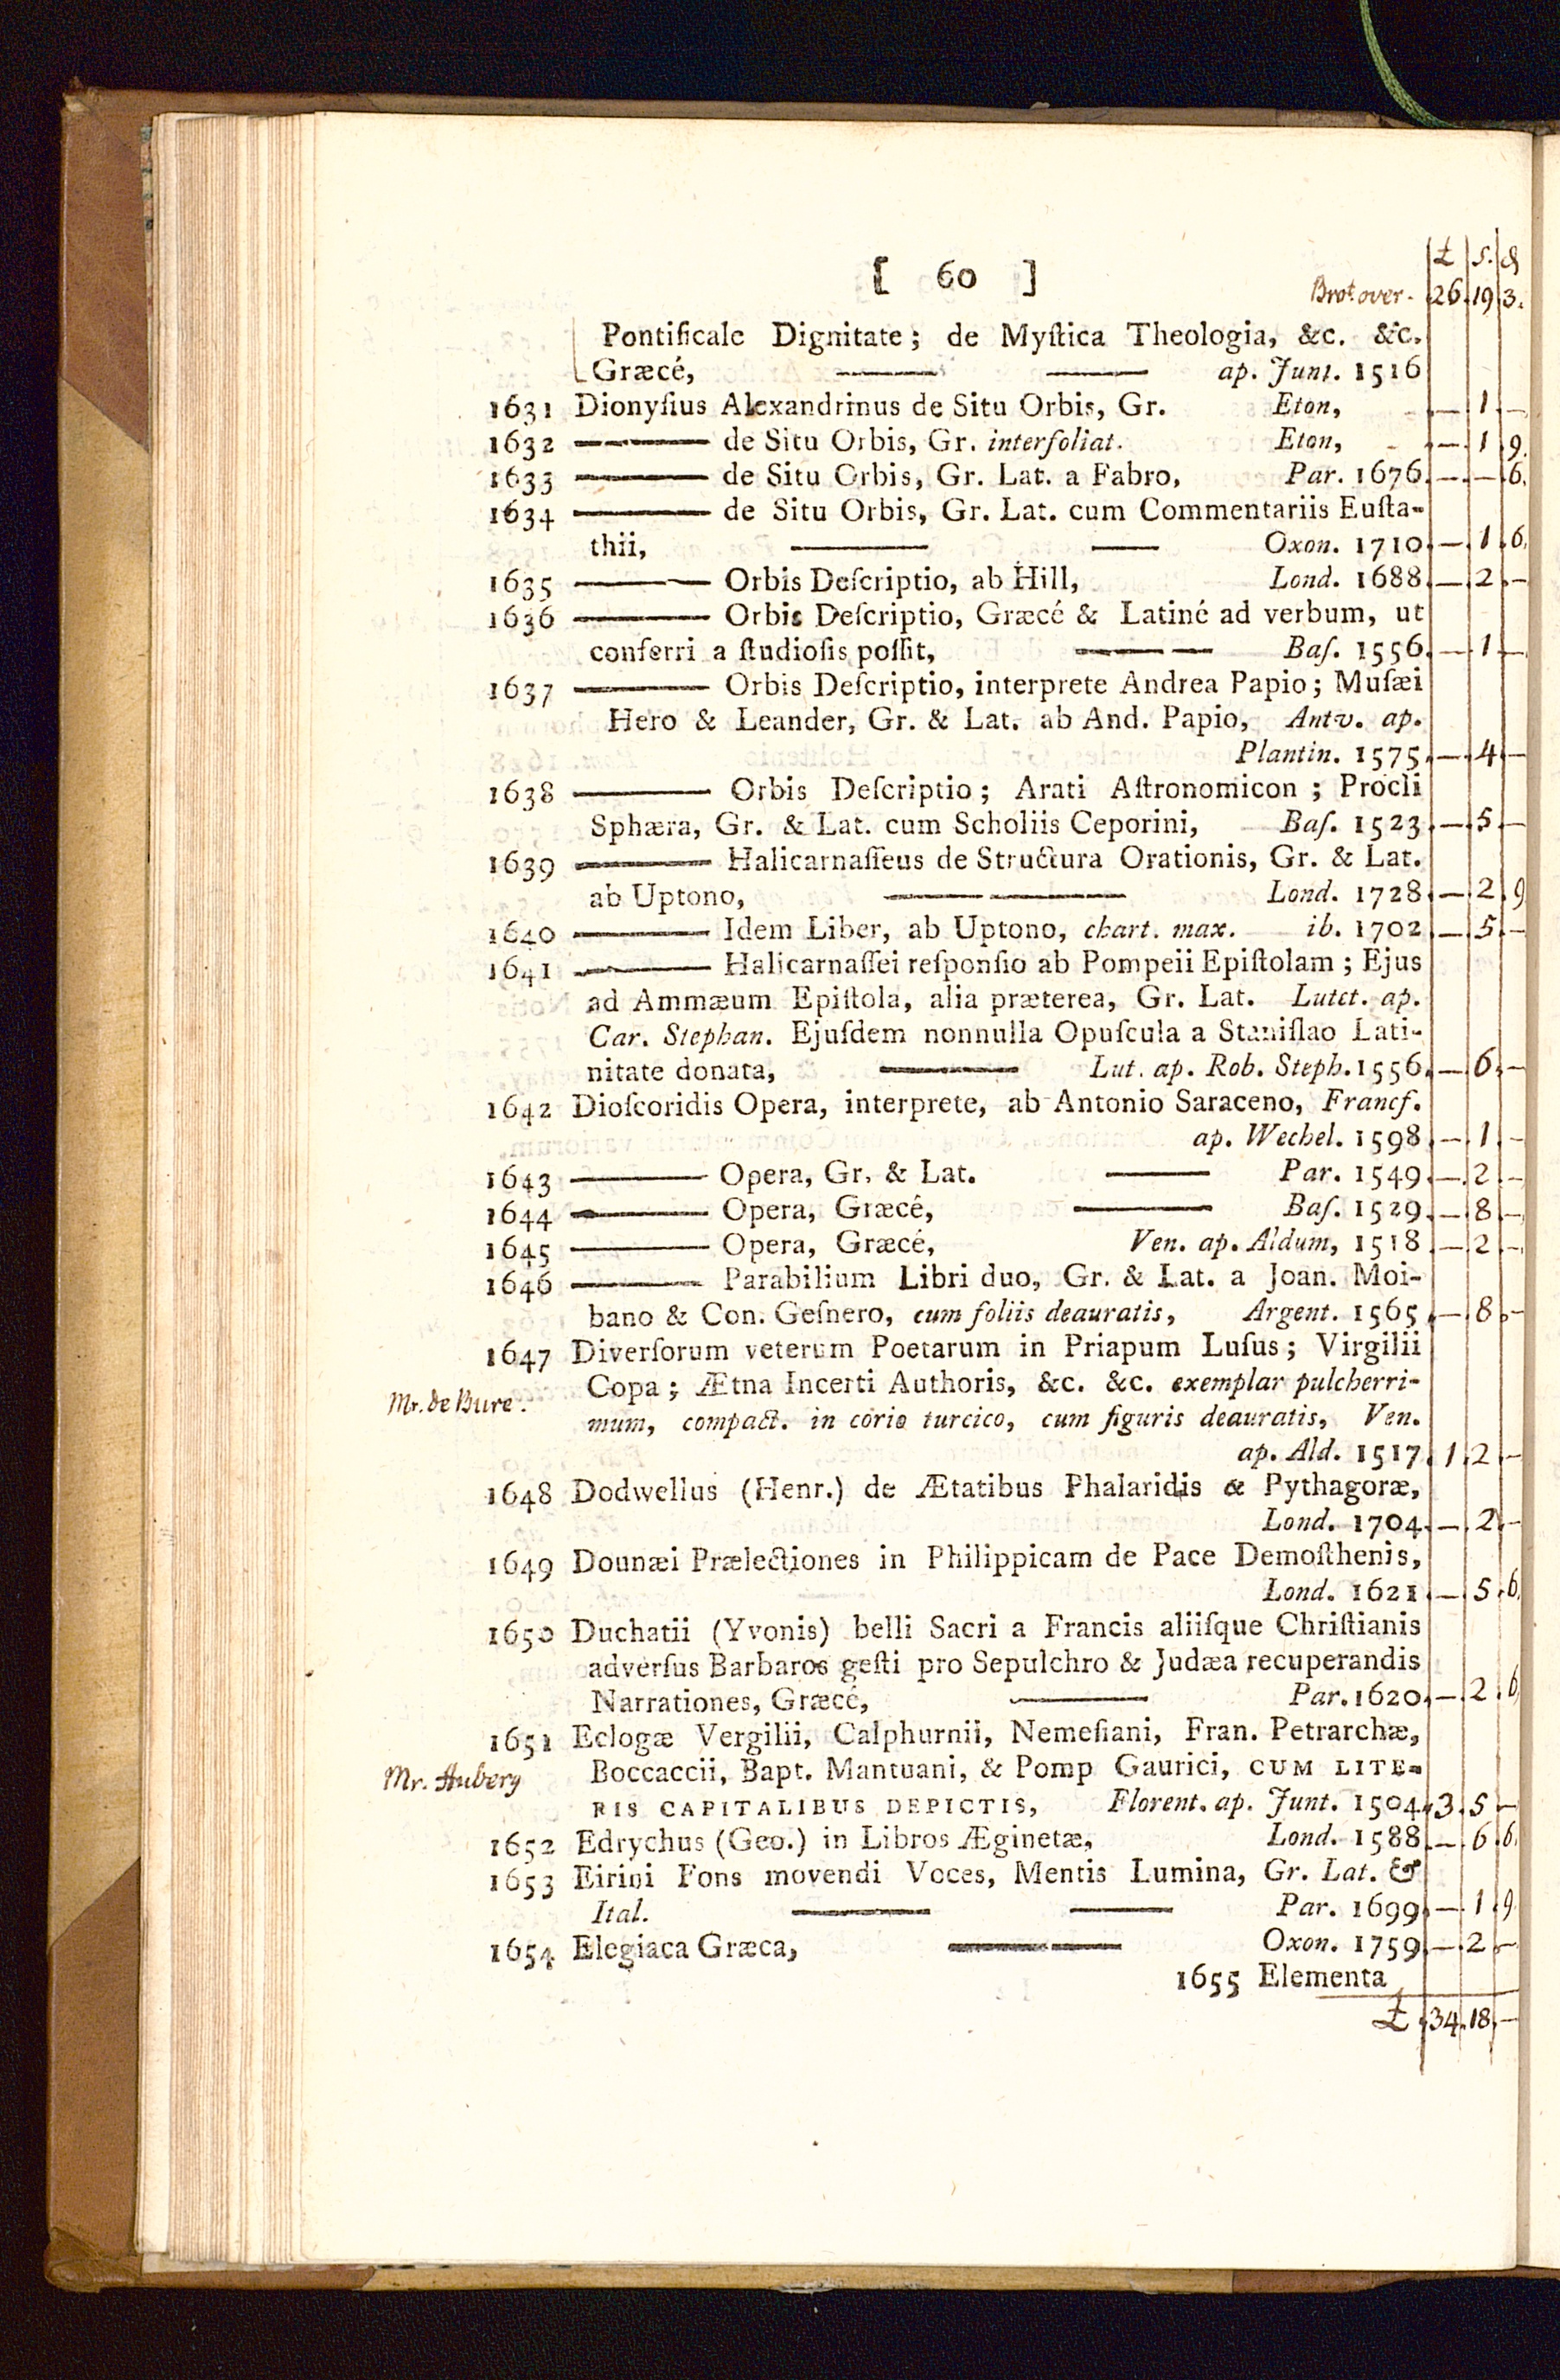 £ s. d
[ 60 ]
Brot over. 26.19.3.
Pontificale Dignitate; de Myſtica Theologia, &c. &c.
Græcé, ap. Junt. 1516
1631 Dionyſius Alexandrinus de Situ Orbis, Gr. Eton, — 1 —
1632 ——— de Situ Orbis, Gr. interfoliat. Eton, — 1 9.
1633 ——— de Situ Orbis, Gr. Lat. a Fabro, Par. 1676. — — 6.
1634 ——— de Situ Orbis, Gr. Lat. cum Commentariis Euſta-
thii, ——— —— Oxon. 1710. — 1 6.
1635 ——— Orbis Deſcriptio, ab Hill, Lond. 1688. — 2 —
1636 ——— Orbis Deſcriptio, Græcé & Latiné ad verbum, ut
conferri a ſtudioſis poſſit, ——— Baſ. 1556. — 1 —
1637 ——— Orbis Deſcriptio, interprete Andrea Papio; Muſæi
Hero & Leander, Gr. & Lat. ab And. Papio, Antv. ap.
Plantin. 1575. — 4 —
1638 ——— Orbis Deſcriptio; Arati Aſtronomicon; Procli
Sphæra, Gr. & Lat. cum Scholiis Ceporini, Baſ. 1523. — 5 —
1639 ——— Halicarnaſſeus de Structura Orationis, Gr. & Lat.
ab Uptono, ——— Lond. 1728. — 2 9
1640 ——— Idem Liber, ab Uptono, chart. max. ib. 1702 — 5 —
1641 ——— Halicarnaſſei reſponſio ab Pompeii Epiſtolam; Ejus
ad Ammæum Epiſtola, alia præterea, Gr. Lat. Lutet. ap.
Car. Stephan. Ejuſdem nonnulla Opuſcula a Staniſlao Lati-
nitate donata, ——— Lut. ap. Rob. Steph. 1556. — 6 —
1642 Dioſcoridis Opera, interprete, ab Antonio Saraceno, Francf.
ap. Wechel. 1598. — 1 —
1643 ——— Opera, Gr. & Lat. ——— Par. 1549. — 2 —
1644 ——— Opera, Græcé, ——— Baſ. 1529. — 8 —
1645 ——— Opera, Græcé, Ven. ap. Aldum, 1518 — 2 —
1646 ——— Parabilium Libri duo, Gr. & Lat. a Joan. Moi-
bano & Con. Geſnero, cum foliis deauratis, Argent. 1565. — 8 —
1647 Diverſorum veterum Poetarum in Priapum Luſus; Virgilii
Mr. de Bure. Copa; Ætna Incerti Authoris, &c. &c. exemplar pulcherri-
mum, compact. in corio turcico, cum figuris deauratis, Ven.
ap. Ald. 1517. 1 2 —
1648 Dodwellus (Henr.) de Ætatibus Phalaridis & Pythagoræ,
Lond. 1704. — 2 —
1649 Dounæi Prælectiones in Philippicam de Pace Demoſthenis,
Lond. 1621 — 5 6.
1650 Duchatii (Yvonis) belli Sacri a Francis aliiſque Chriſtianis
adverſus Barbaros geſti pro Sepulchro & Judæa recuperandis
Narrationes, Græcé, ——— Par. 1620. — 2 6.
1651 Eclogæ Vergilii, Calphurnii, Nemeſiani, Fran. Petrarchæ,
Mr. Aubery Boccaccii, Bapt. Mantuani, & Pomp Gaurici, CUM LITE-
RIS CAPITALIBUS DEPICTIS, Florent. ap. Junt. 1504. 3 5 —
1652 Edrychus (Geo.) in Libros Æginetæ, Lond. 1588. — 6 6.
1653 Eirini Fons movendi Voces, Mentis Lumina, Gr. Lat. &
Ital. ——— ——— Par. 1699. — 1 9.
1654 Elegiaca Græca, ——— Oxon. 1759. — 2 —
1655 Elementa
£ 34. 18. —